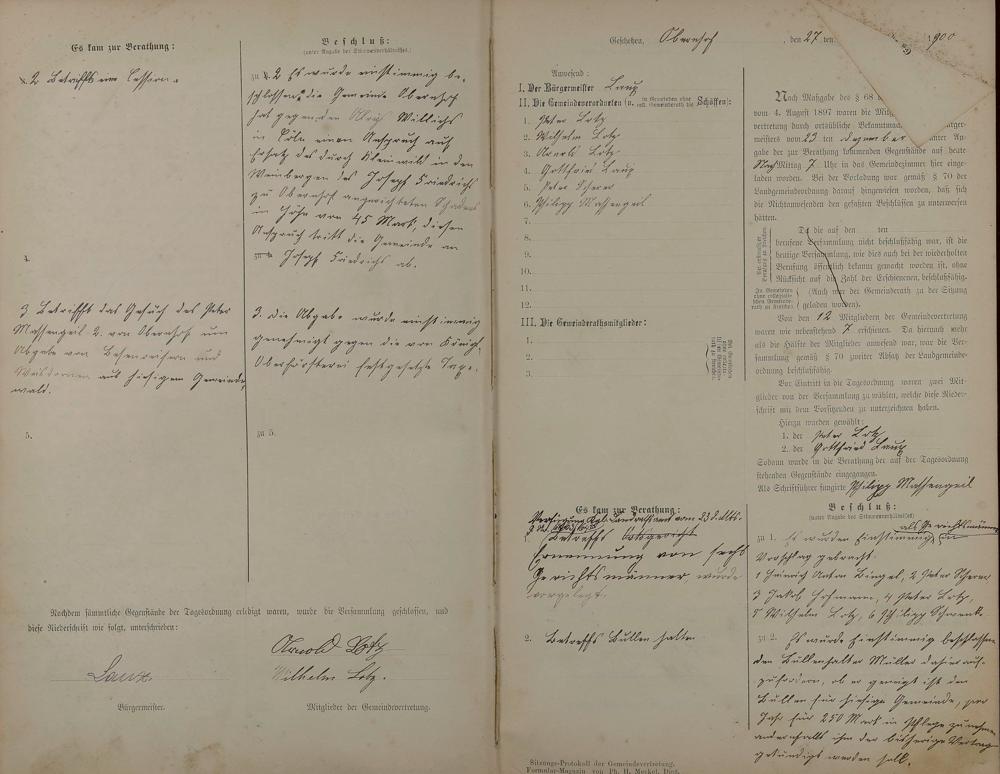 Es kam zur Berathung:
2 Betreffs eine Cession.
4.
3 Betrifft das Gesuch des Peter
Massengeil 2. von Obernhof um
Abgabe von Besenreisern und
Weisdornen aus hiesigem Gemeinde
wald.
5.
Beschluß:
(unter Angabe des Stimmenverhältnisses.)
zu 2 Es wurde einstimmig be-
schlossen: die Gemeinde Obernhof
hat gegen den Willichs
in Cöln einen Anspruch auf
Ersatz des durch Kleinwild in den
Weinbergen des Joseph Friedrichs
zu Obernhof angerichteten Schadens
in Höhe von 45 Mark, diesen
Anspruch tritt die Gemeinde an
zu 4. Joseph Friedrichs ab.
3. Die Abgabe wurde einstimmig
genehmigt gegen die von Königl.
Oberförsterei festgesetzte Taxe.
zu 5.
Nachdem sämmtliche Gegenstände der Tagesordnung erledigt waren, wurde die Versammlung geschlossen, und
diese Niederschrift wie folgt, unterschrieben:
Arnold Lotz
Laux
Wilhelm Lotz.
Bürgermeister.
Mitglieder der Gemeindevertretung.
Geschehen, Obernhof, den 27 ten 1900
Anwesend:
I. Der Bürgermeister Laux
II. Die Gemeindeverordneten (u. in Gemeinden ohne coll. Gemeinderath die Schöffen):
1. Peter Lotz
2. Wilhelm Lotz
3. Arnold Lotz
4. Gottfried Laux
5. Peter Scherer
6. Philipp Massengeil
7.
8.
9.
10.
11.
12.
III. Die Gemeinderathsmitglieder:
1.
2.
3.
Nach Maßgabe des § 68
vom 4. August 1897 waren die Mitg
vertretung durch ortsübliche Bekanntmach
meisters vom 23 ten Dezember unter An-
gabe der zur Berathung kommenden Gegenstände auf heute
Nach Mittag 7 Uhr in das Gemeindezimmer hier einge-
laden worden. Bei der Vorladung war gemäß § 70 der
Landgemeindeordnung darauf hingewiesen worden, daß sich
die Nichtanwesenden den gefaßten Beschlüssen zu unterwerfen
hätten.
Da die auf den ten
berufene Versammlung nicht beschlußfähig war, ist die
heutige Versammlung, wie dies auch bei der wiederholten
Berufung öffentlich bekannt gemacht worden ist, ohne
Rücksicht auf die Zahl der Erschienenen, beschlußfähig.
(Auch war der Gemeinderath zu der Sitzung
(geladen worden).
Von den 12 Mitgliedern der Gemeindevertretung
waren wie nebenstehend 7 erschienen. Da hiernach mehr
als die Hälfte der Mitglieder anwesend war, war die Ver-
sammlung gemäß § 70 zweiter Absatz der Landgemeinde-
ordnung beschlußfähig.
Vor Eintritt in die Tagesordnung waren zwei Mit-
glieder von der Versammlung zu wählen, welche diese Nieder-
schrift mit dem Vorsitzenden zu unterzeichnen haben.
Hierzu wurden gewählt:
1. der Peter Lotz
2. der Gottfried Laux
Sodann wurde in die Berathung der auf der Tagesordnung
stehenden Gegenstände eingegangen.
Als Schriftführer fungirte Philipp Massengeil
Es kam zur Berathung:
Verfügung Kgl. Landrathsamt vom 23 d. Mts.
Betreffs Ortsgericht
Ernennung von sechs
Gerichtsmänner wurde
vorgelegt.
2. Betreffs Bullen halten
Beschluß:
(unter Angabe des Stimmenverhältnisses)
als Gerichtsmänner
zu 1. Es wurden Einstimmig in
Vorschlag gebracht:
1 Heinrich Anton Bingel, 2 Peter Scherer
3 Jakob Hofmann, 4 Peter Lotz,
5 Wilhelm Lotz, 6 Philipp Schwenk.
zu 2. Es wurde Einstimmig beschlossen
den Bullenhalter Müller dahier auf-
zufordern, ob er geneigt ist den
Bullen für hiesige Gemeinde, pro
Jahr für 250 Mark in Pflege zu nehmen
andernfalls ihm der bisherige Vertrag
gekündigt werden soll.
Sitzungs-Protokoll der Gemeindevertretung.
Formular-Magazin von Ph. H. Meckel, Diez.